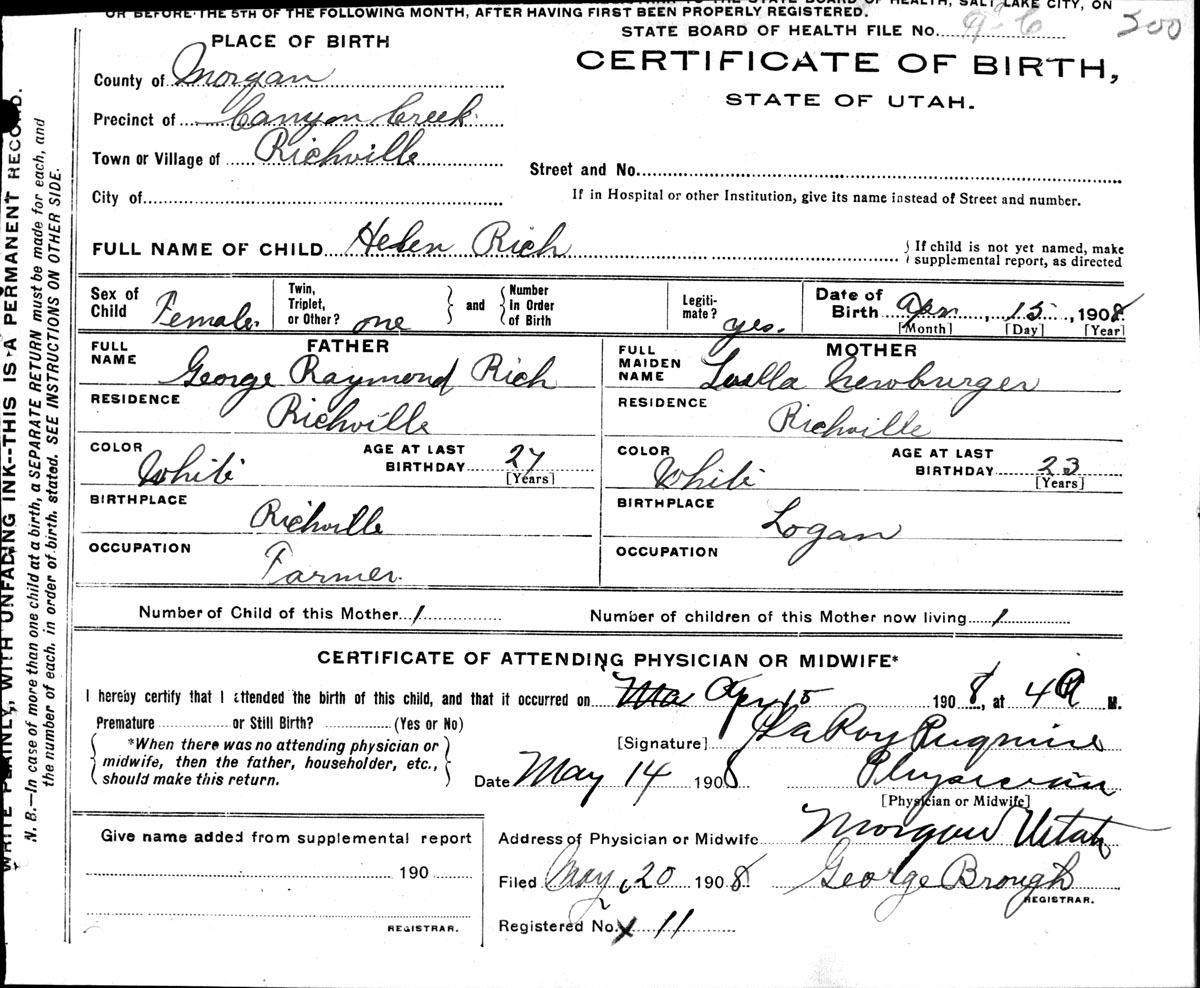 OR BEFORE THE 5TH OF THE FOLLOWING MONTH, AFTER HAVING FIRST BEEN PROPERLY REGISTERED.
STATE BOARD OF HEALTH, SALT LAKE CITY, ON
STATE BOARD OF HEALTH FILE No. 200
PLACE OF BIRTH
CERTIFICATE OF BIRTH,
STATE OF UTAH.
County of Morgan
Precinct of Canyon Creek
Town or Village of Richville
Street and No.
City of
If in Hospital or other Institution, give its name instead of Street and number.
FULL NAME OF CHILD Helen Rich
If child is not yet named, make
supplemental report, as directed
Sex of Child Female.
Twin, Triplet, or Other? one
and Number in Order of Birth
Legiti-mate? yes.
Date of Birth Apr 15, 1908
[Month] [Day] [Year]
FATHER
FULL NAME George Raymond Rich
RESIDENCE Richville
COLOR White
AGE AT LAST BIRTHDAY 27
[Years]
BIRTHPLACE Richville
OCCUPATION Farmer.
MOTHER
FULL MAIDEN NAME Luella Newburger
RESIDENCE Richville
COLOR White
AGE AT LAST BIRTHDAY 23
[Years]
BIRTHPLACE Logan
OCCUPATION
Number of Child of this Mother 1
Number of children of this Mother now living 1
CERTIFICATE OF ATTENDING PHYSICIAN OR MIDWIFE*
I hereby certify that I attended the birth of this child, and that it occurred on Apr 15 1908, at 4 M.
Premature or Still Birth? (Yes or No)
*When there was no attending physician or
midwife, then the father, householder, etc.,
should make this return.
[Signature] LaRoy Pugmire
Date May 14 1908 Physician
[Physician or Midwife]
Give name added from supplemental report
190
REGISTRAR.
Address of Physician or Midwife Morgan Utah
Filed May 20 1908 George Brough
REGISTRAR.
Registered No. 11
WRITE PLAINLY, WITH UNFADING INK--THIS IS A PERMANENT RECORD.
N. B.—In case of more than one child at a birth, a SEPARATE RETURN must be made for each, and
the number of each, in order of birth, stated. SEE INSTRUCTIONS ON OTHER SIDE.